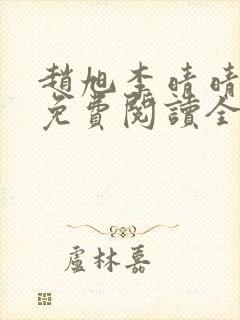 趙旭李晴晴
免費閱讀全
盧林嘉